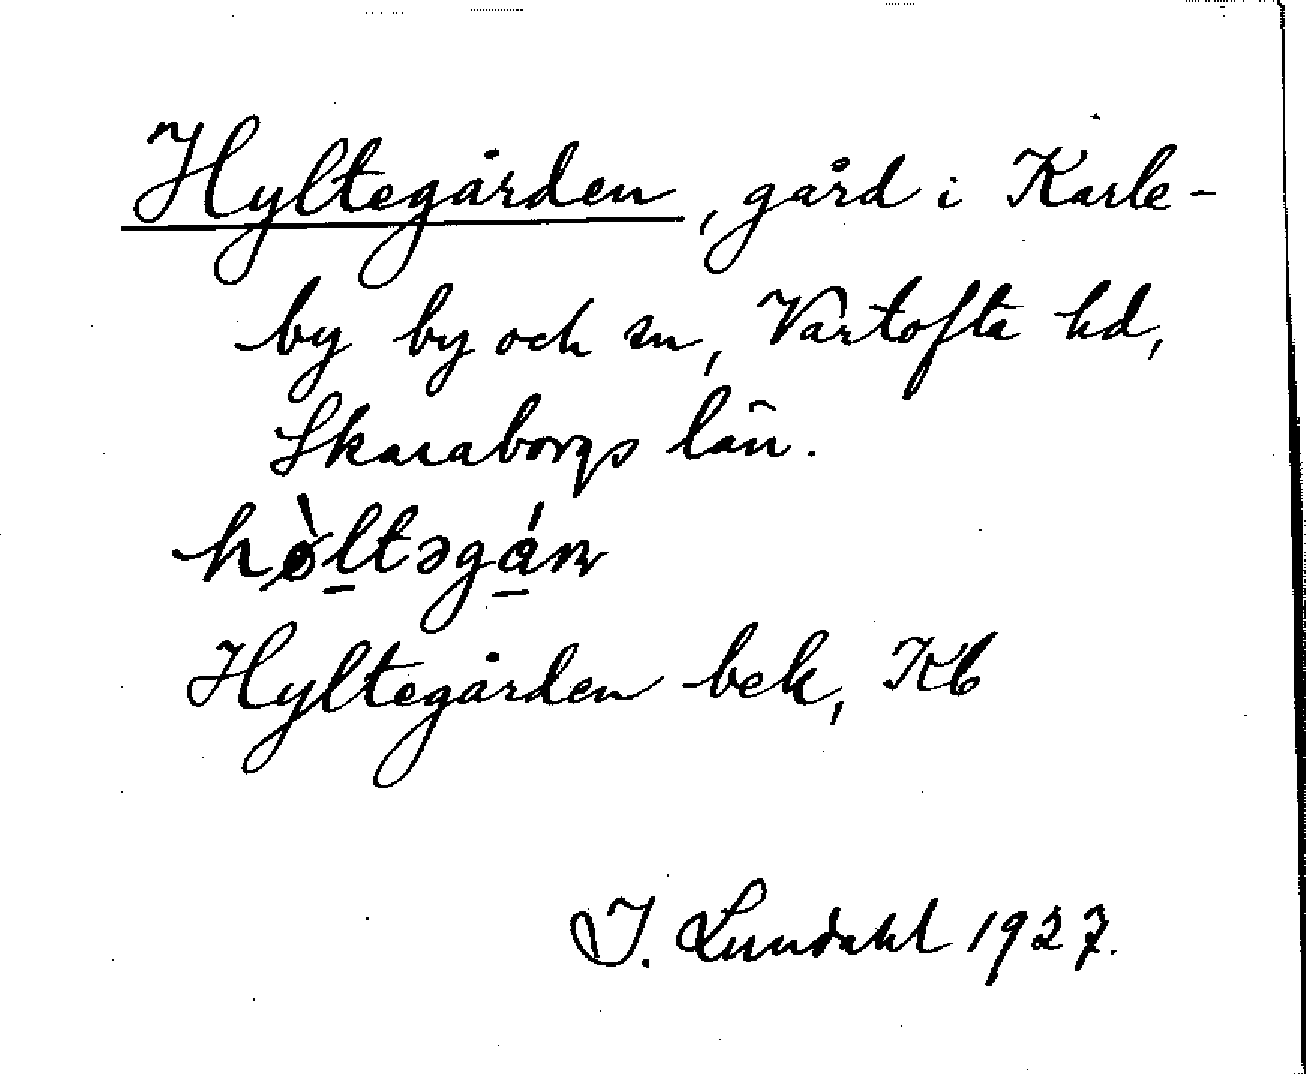 Hyltegården, gård i Karle-
by by och sn, Vartofta hd,
Skaraborgs län.
hø̀ltəgán
Hyltegården bek, Kb
I. Lundahl 1927.